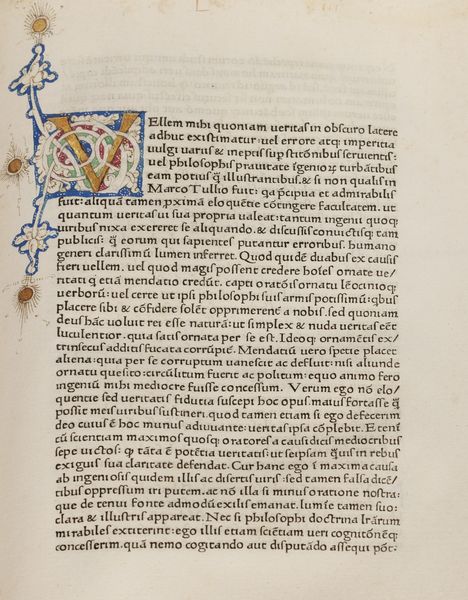 VEllem mihi quoniam ueritas in obscuro latere
adhuc existimatur: uel errore atq; imperitia
uulgi uariis & ineptis supstitõnibus seruientis:
uel philosophis prauitate ĩgenioꝝ turbãtibus
eam potius q̃ illustrantibus. & si non qualis in
Marco Tullio fuit: qa p̃cipua et admirabilis
fuit: aliquã tamen ꝓximã eloquẽtie cõtingere facultatem. ut
quantum ueritas ui sua propria ualeat: tantum ingenii quoq;
uiribus nixa exereret se aliquando. & discussis conuictisq; tam
publicis: q̃ eorum qui sapientes putantur erroribus. humano
generi clarissimũ lumen inferret. Quod quidẽ duabus ex causis
fieri uellem. uel quod magis possent credere hoĩes ornate ue/
ritati q etiã mendatio credũt. capti oratõis ornatu lẽocinioq;
uerborũ: uel certe ut ipsi philosophi suis armis potissimũ: qbus
placere sibi & cõfidere solẽt opprimerent̃ a nobis. sed quoniam
deus hãc uoluit rei esse naturã: ut simplex & nuda ueritas eẽt
luculentior. quia satis ornata per se est. Ideoq; ornamẽtis ex/
trinsecus additis fucata corrũpit̃. Mendatiũ uero spetie placet
aliena: quia per se corruptum uanescit ac defluit: nisi aliunde
ornatu quesito: circũlitum fuerit ac politum: equo animo fero
ingeniũ mihi mediocre fuisse concessum. Verum ego nõ elo/
quentie sed ueritatis fidutia suscepi hoc opus. maius fortasse q̃
possit meis uiribus sustineri. quod tamen etiam si ego defecerim
deo cuius ẽ hoc munus adiuuante: ueritas ipsa cõplebit. Etenĩ
cũ scientiam maximos quosq; oratores a causidicis mediocribus
sepe uictos: q̃ tãta ẽ potẽtia ueritatis: ut seipsam q̃uis in rebus
exiguis sua claritate defendat. Cur hanc ego ĩ maxima causa
ab ingeniosis quidem illis ac disertis uiris: sed tamen falsa dicẽ/
tibus oppressum iri putem. ac nõ illa si minus oratione nostra:
que de tenui fonte admodũ exilis emanat. lumĩe tamen suo:
clara & illustris appareat. Nec si philosophi doctrina lr̃arum
mirabiles extiterint: ego illis etiam sciẽtiam ueri cognitõnẽq;
concesserim. quã nemo cogitando aut disputãdo assequi põt: